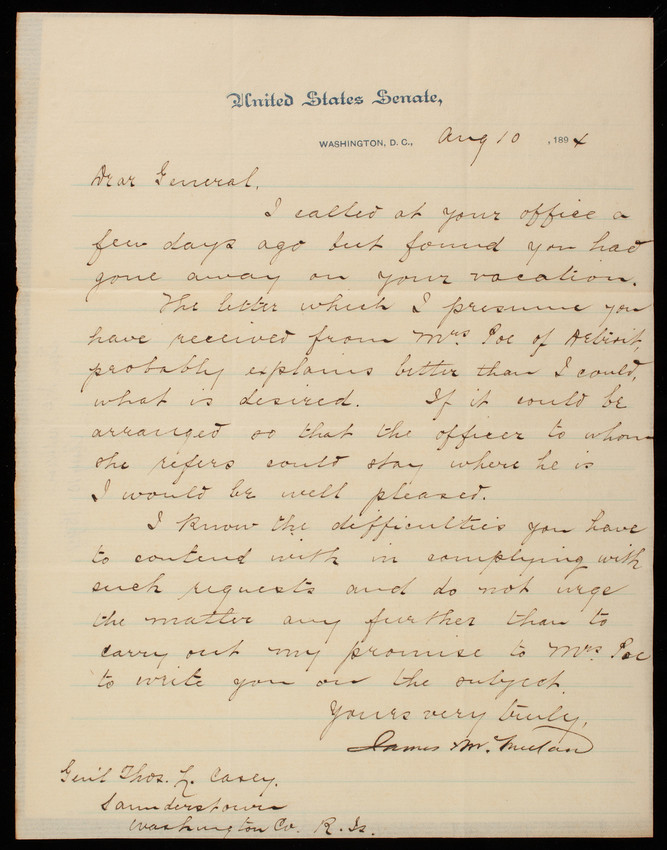 United States Senate,
WASHINGTON, D. C., Aug 10, 1894
Dear General.
I called at your office a
few days ago but found you had
gone away on your vacation.
The letter which I presume you
have received from Mrs. Poe of Detroit,
probably explains better than I could,
what is desired. If it could be
arranged so that the officer to whom
she refers could stay where he is
I would be well pleased.
I know the difficulties you have
to contend with in complying with
such requests and do not urge
the matter any further than to
carry out my promise to Mrs. Poe
to write you on the subject.
Yours very truly,
James McMillan
Gen'l Thos. L. Casey.
Saunderstown
Washington Co. R. Is.